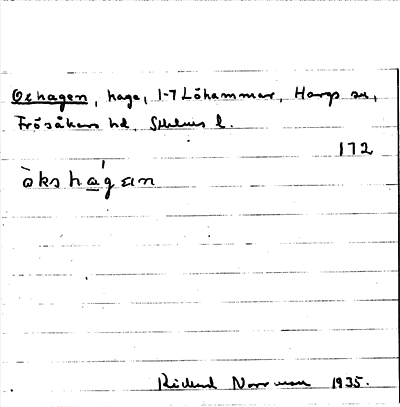 Oxhagen, hage, 1-7 Löhammar, Hargs sn,
Frösåkers hd, Sthlms l.
172
òkshágan
Rickard Norrman 1935.